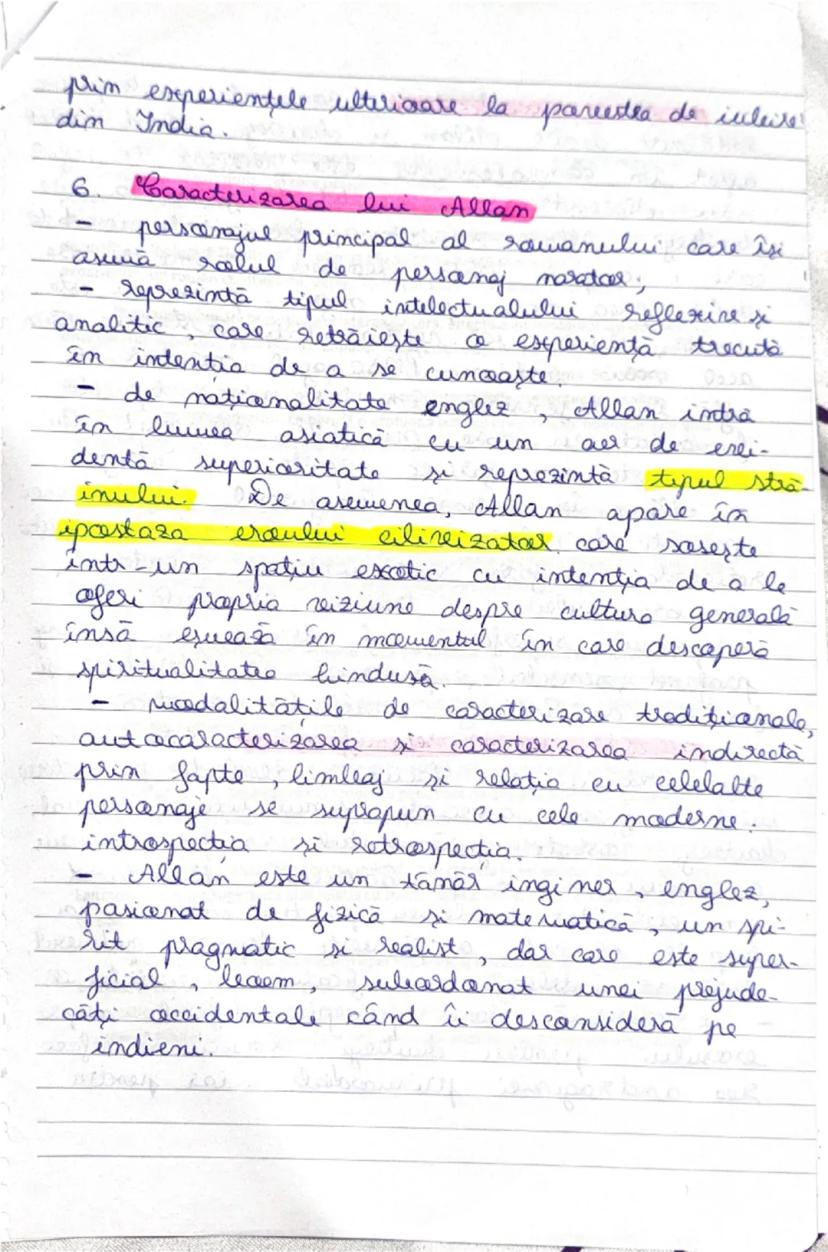 prin experiențele ulterioare la povestea de iubire
din India.
6. Caracterizarea lui Allan
- personajul principal al romanului care își
asumă rolul de personaj narator;
- reprezintă tipul intelectualului reflexiv și
analitic, care retrăiește o experiență trecută
în intenția de a se cunoaște.
- de naționalitate englez, Allan intră
în lumea asiatică cu un aer de evi-
dentă superioritate și reprezintă tipul stră-
inului. De asemenea, Allan apare în
ipostaza eroului civilizator care sosește
într-un spațiu exotic cu intenția de a le
oferi propria viziune despre cultura generală
însă eșuează în momentul în care descoperă
spiritualitatea hindusă.
- modalitățile de caracterizare tradiționale,
autocaracterizarea și caracterizarea indirectă
prin fapte, limbaj și relația cu celelalte
personaje se suprapun cu cele moderne:
introspecția și retrospecția.
- Allan este un tânăr inginer, englez,
pasionat de fizică și matematică, un spi-
rit pragmatic și realist, dar care este super-
ficial, subordonat unei prejude-
căți occidentale când îi desconsideră pe
indieni.